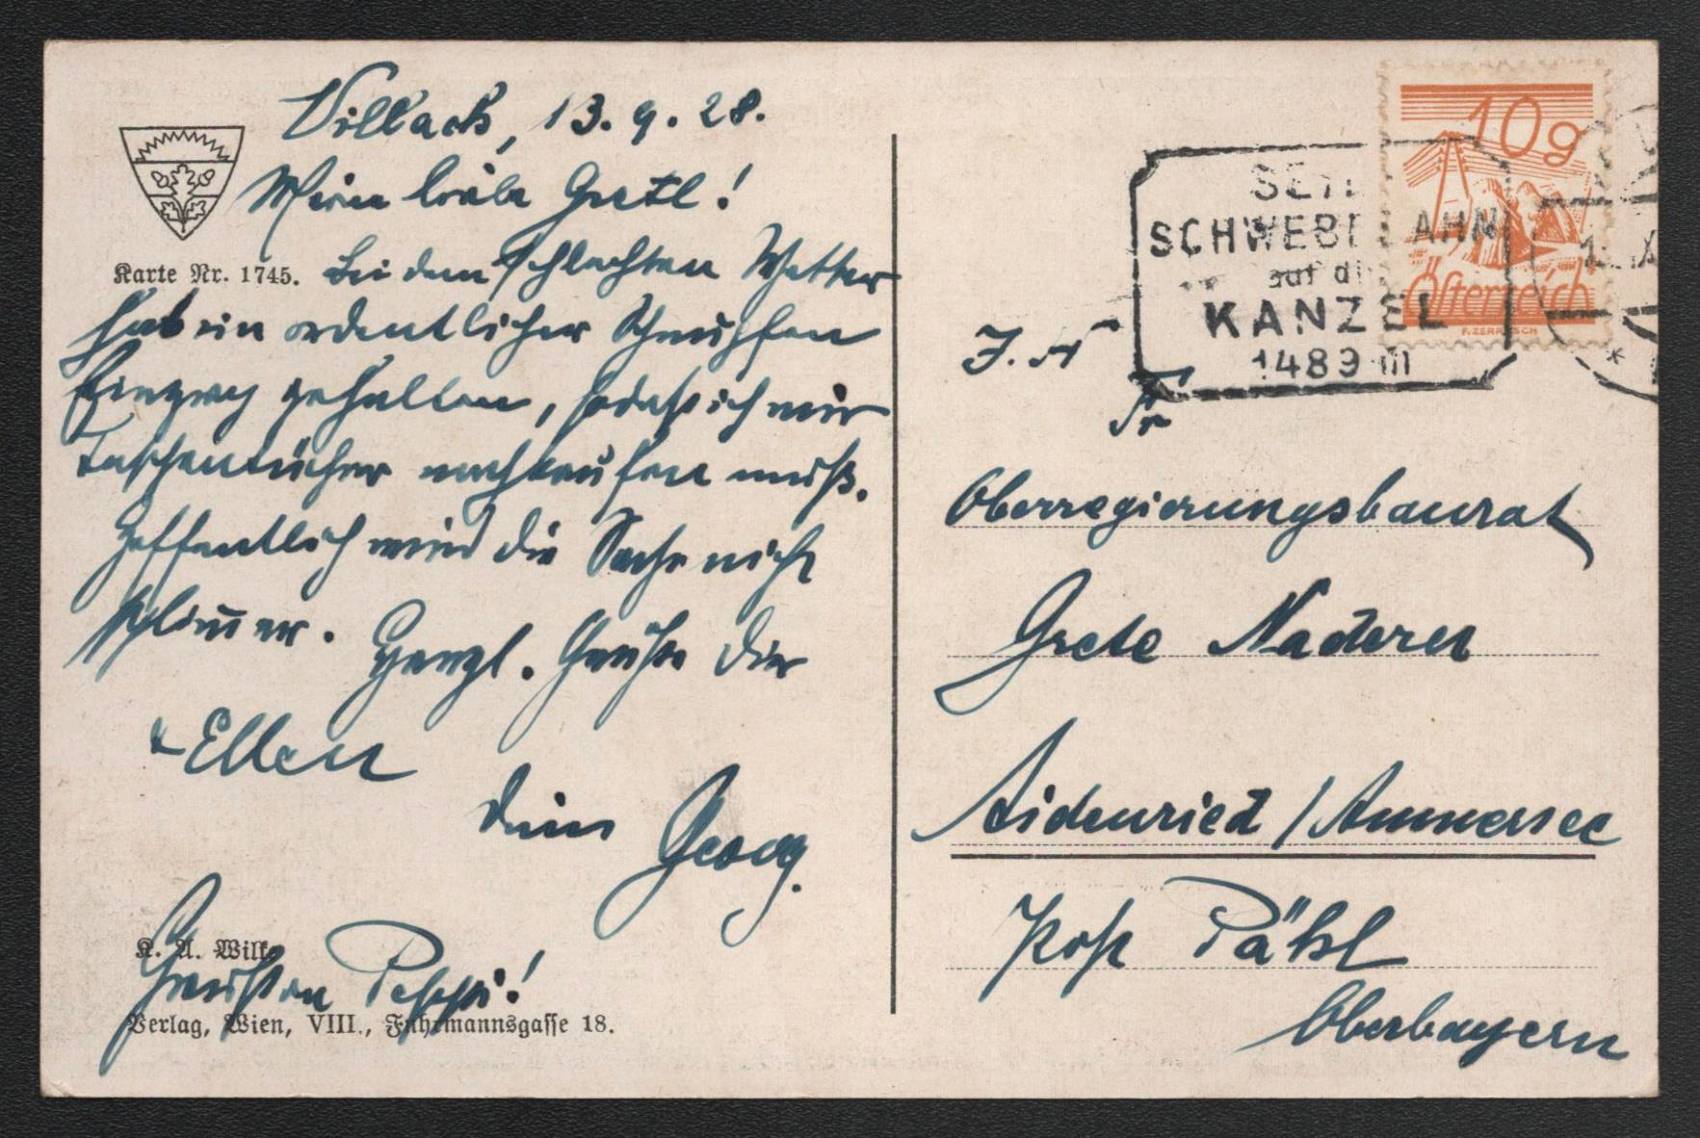 Villach, 13.9.28.
Meine liebe Gretl!
Karte Nr. 1745.
Bei dem schlechten Wetter
hab ein ordentlicher Schnupfen
Einzug gehalten, sodaß ich mir
Taschentücher nachkaufen muß.
Hoffentlich wird die Sache nicht
schlim̄er. Herzl. Grüße Dir
+ Ellen
Dein Georg.
K. A. Wilke
Grüß den Peppi!
Verlag, Wien, VIII., Fuhrmannsgasse 18.
10g
Österreich
SCHWEBEBAHN
auf die
KANZEL
1489 m
Fr
Oberregierungsbaurat
Grete Naderer
Aidenried / Ammersee
Post Pähl
Oberbayern